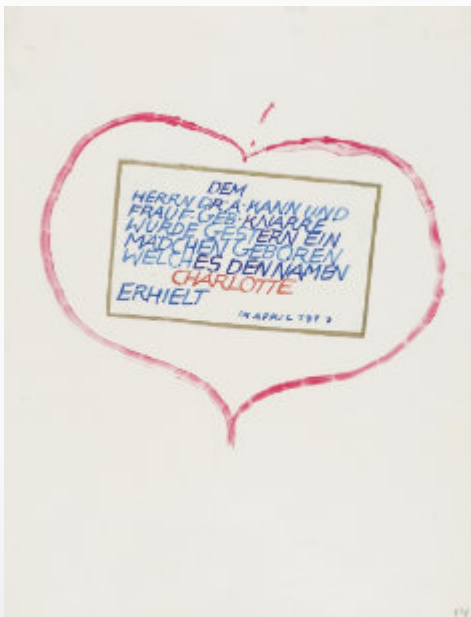 DEM
HERRN DR·A·KANN UND
FRAU F·GEB·KNARRE
WURDE GESTERN EIN
MÄDCHEN GEBOREN
WELCHES DEN NAMEN
CHARLOTTE
ERHIELT
IM APRIL